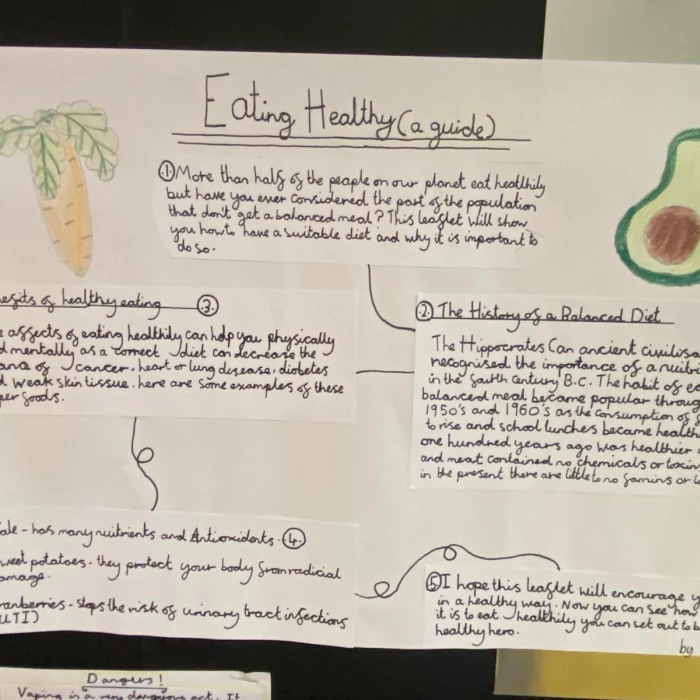 Eating Healthy (a guide)
① More than half of the people on our planet eat healthily
but have you ever considered the part of the population
that don't get a balanced meal? This leaflet will show
you how to have a suitable diet and why it is important to
do so.
② The History of a Balanced Diet
The Hippocrates (an ancient civilisa
recognised the importance of a nuitri
in the fourth century B.C. The habit of ea
balanced meal became popular throug
1950's and 1960's as the consumption of
to rise and school lunches became health
one hundred years ago was healthier
and meat contained no chemicals or toxin
in the present there are little to no famins or
efits of healthy eating ③
e affects of eating healthily can help you physically
d mentally as a correct diet can decrease the
of cancer, heart or lung disease, diabetes
d weak skin tissue. here are some examples of these
per foods.
ale - has many nuitrients and Antioxidents. ④
weet potatoes - they protect your body from radicial
amage.
ranberries - stops the risk of urinary tract infections
UTI)
⑤ I hope this leaflet will encourage y
in a healthy way. Now you can see how
it is to eat healthily you can set out to b
healthy hero.
by
Dangers!
Vaping is a very dangerous act. It